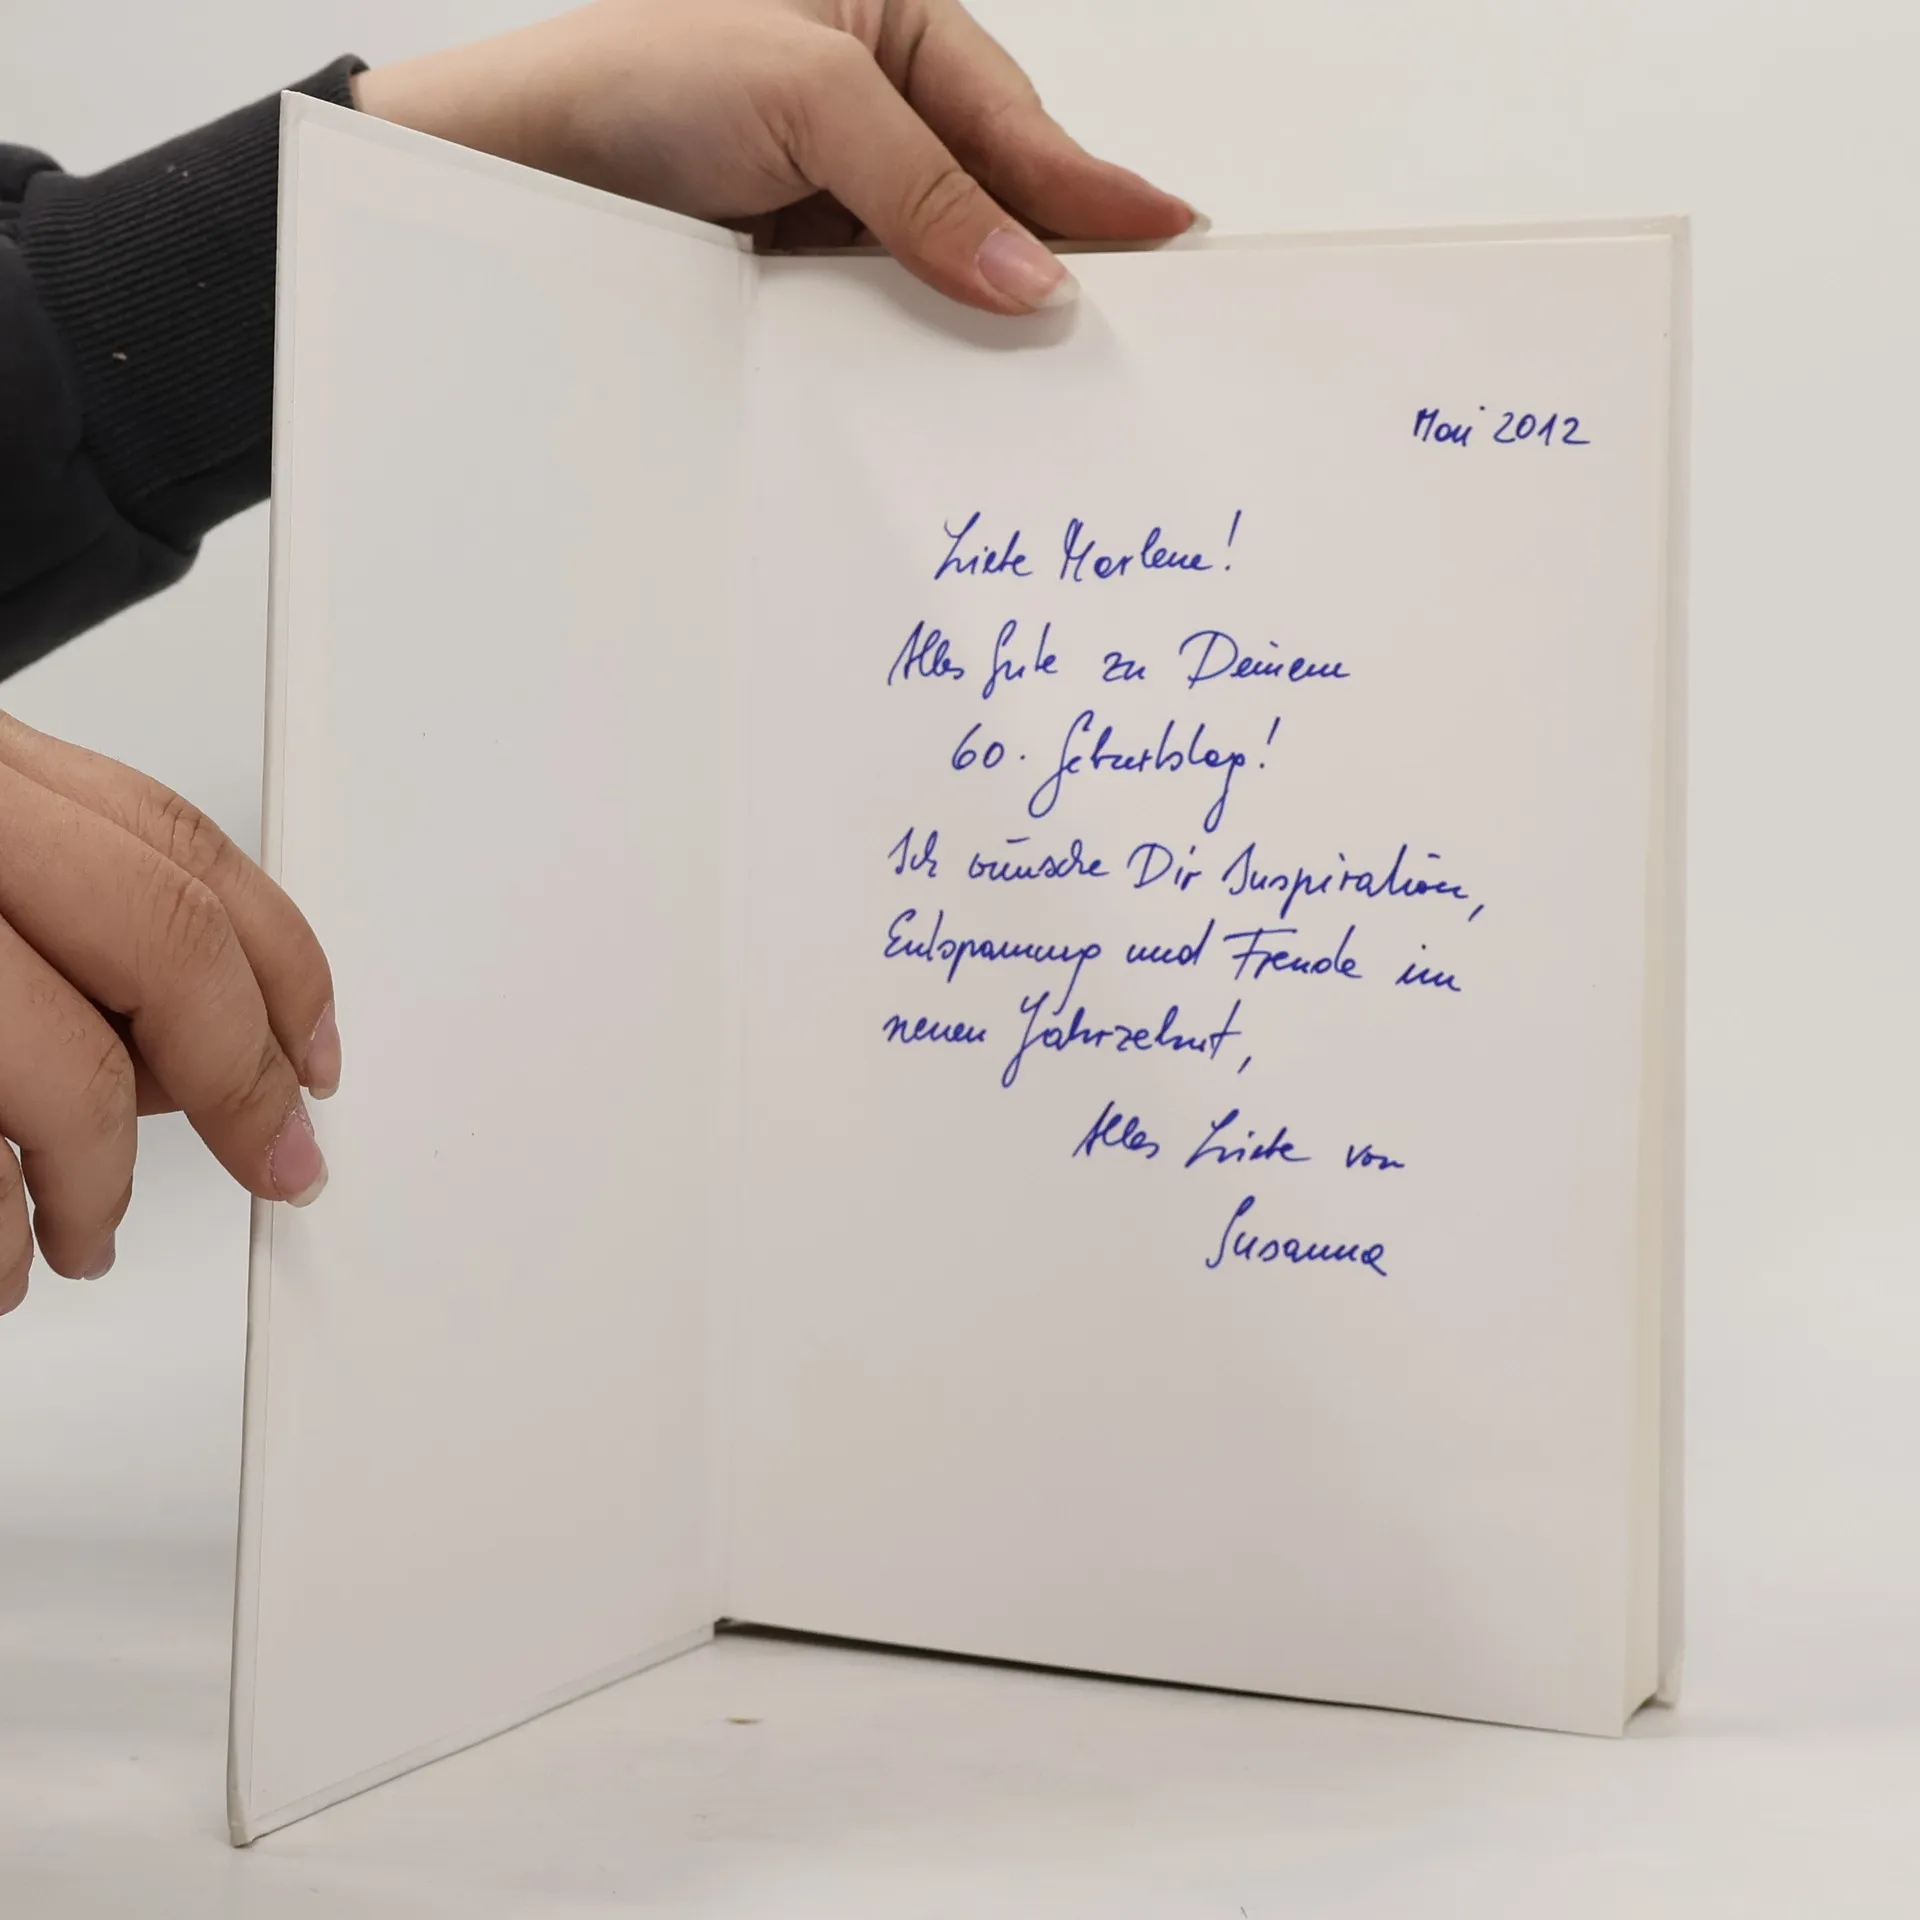 Mai 2012
Liebe Marlene!
Alles Gute zu Deinem
60. Geburtstag!
Ich wünsche Dir Inspiration,
Entspannung und Freude im
neuen Jahrzehnt,
Alles Liebe von
Susanna